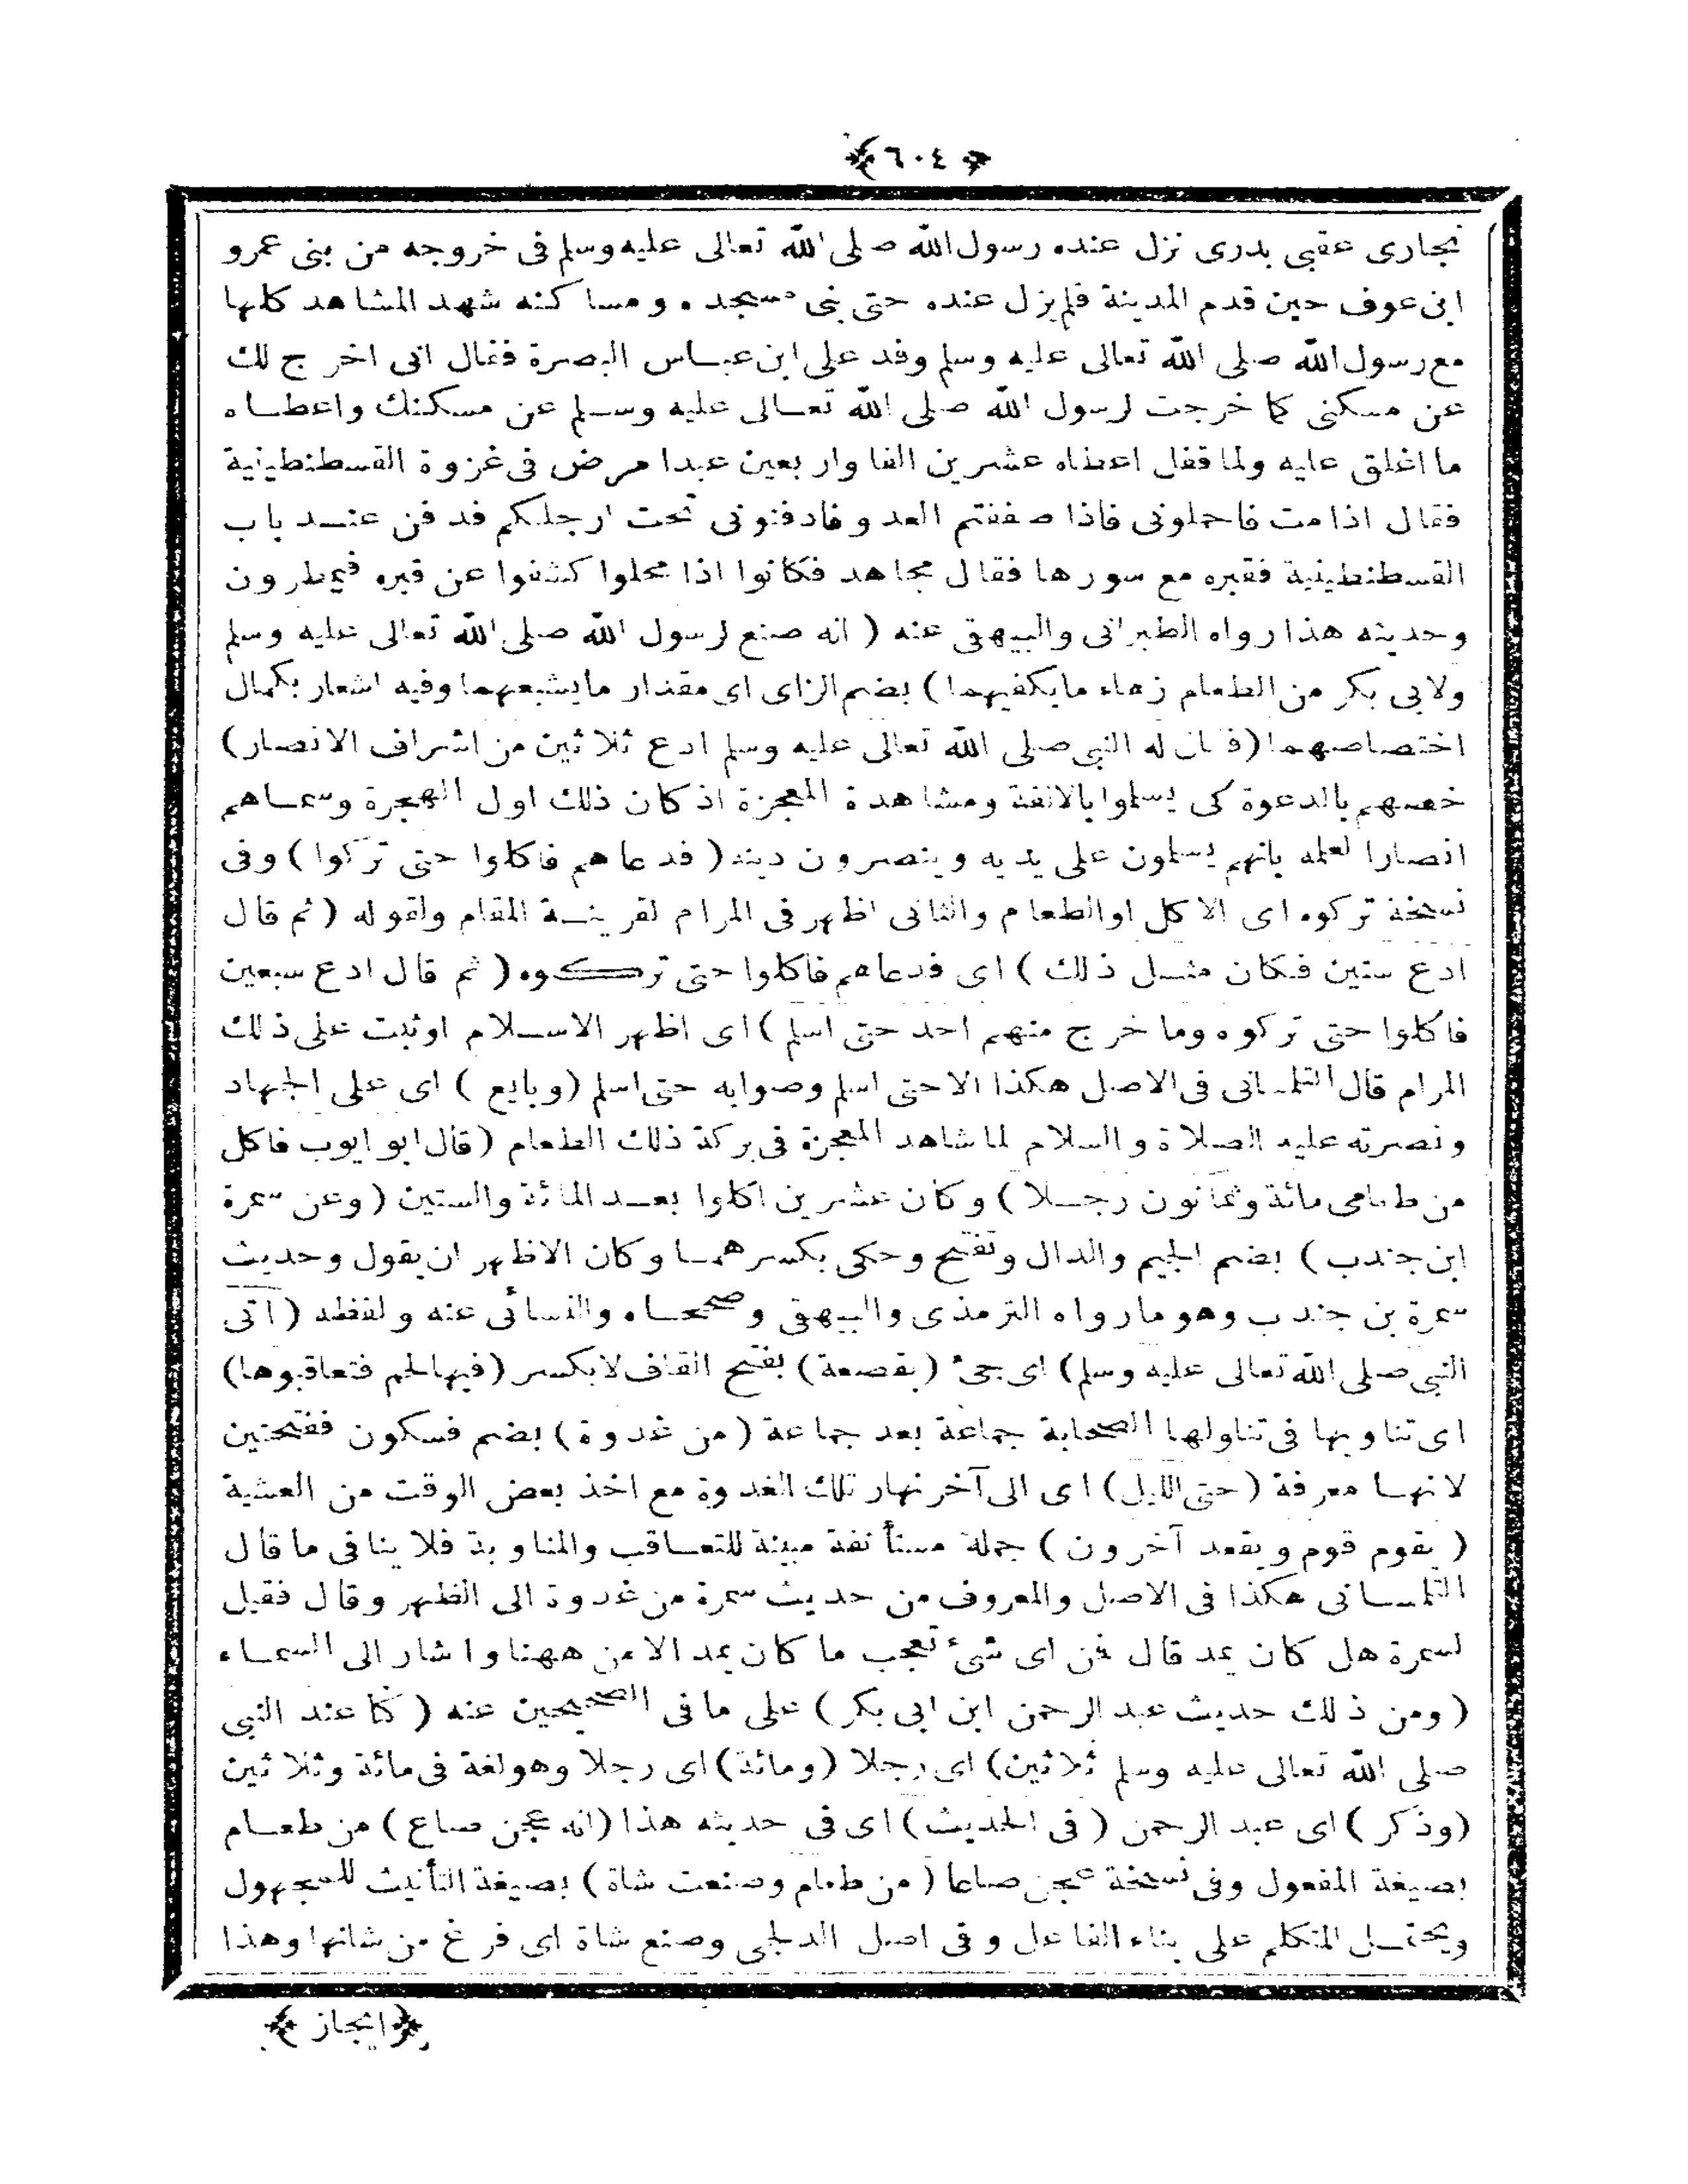 ﴿٦٠٤﴾
نجارى عقبى بدرى نزل عنده رسول الله صلى الله تعالى عليه وسلم فى خروجه من بنى عمرو
ابن عوف حين قدم المدينة فلم يزل عنده حتى بنى مسجده ومساكنه شهد المشاهد كلها
مع رسول الله صلى الله تعالى عليه وسلم وفد على ابن عباس البصرة فقال انى اخرج لك
عن مسكنى كما خرجت لرسول الله صلى الله تعالى عليه وسلم عن مسكنك واعطاه
ما اغلق عليه ولما قفل اعطاه عشرين الفا واربعين عبدا مرض فى غزوة القسطنطينية
فقال اذا مت فاحملونى فاذا صففتم العدو فادفنونى تحت ارجلكم فدفن عند باب
القسطنطينية فقبره مع سورها فقال مجاهد فكانوا اذا محلوا كشفوا عن قبره فيمطرون
وحديثه هذا رواه الطبرانى والبيهقى عنه ( انه صنع لرسول الله صلى الله تعالى عليه وسلم
ولابى بكر من الطعام زهاء ما يكفيهما ) بضم الزاى اى مقدار ما يشبعهما وفيه اشعار بكمال
اختصاصهما ( فقال له النبى صلى الله تعالى عليه وسلم ادع ثلاثين من اشراف الانصار )
خصهم بالدعوة كى يسلموا بالالفة ومشاهدة المعجزة اذ كان ذلك اول الهجرة وسماهم
انصارا لعلمه بانهم يسلمون على يديه وينصرون دينه ( فدعاهم فاكلوا حتى تركوا ) وفى
نسخة تركوه اى الاكل او الطعام والثانى اظهر فى المرام لقرينة المقام ولقوله ( ثم قال
ادع ستين فكان مثل ذلك ) اى فدعاهم فاكلوا حتى تركوه ( ثم قال ادع سبعين
فاكلوا حتى تركوه وما خرج منهم احد حتى اسلم ) اى اظهر الاسلام او ثبت على ذلك
المرام قال التلمسانى فى الاصل هكذا الا حتى اسلم وصوابه حتى اسلم ( وبايع ) اى على الجهاد
ونصرته عليه الصلاة والسلام لما شاهد المعجزة فى بركة ذلك الطعام ( قال ابو ايوب فاكل
من طعامى مائة وثمانون رجلا ) وكان عشرين اكلوا بعد المائة والستين ( وعن سمرة
ابن جندب ) بضم الجيم والدال وتفتح وحكى بكسرهما وكان الاظهر ان يقول وحديث
سمرة بن جندب وهو ما رواه الترمذى والبيهقى وصححاه والنسائى عنه ولفظه ( اتى
النبى صلى الله تعالى عليه وسلم ) اى جئ ( بقصعة ) بفتح القاف لا بكسر ( فيها لحم فتعاقبوها )
اى تناوبها فى تناولها الصحابة جماعة بعد جماعة ( من غدوة ) بضم فسكون ففتحتين
لانها معرفة ( حتى الليل ) اى الى آخر نهار تلك الغدوة مع اخذ بعض الوقت من العشية
( يقوم قوم ويقعد آخرون ) جملة مستأنفة مبينة للتعاقب والمناوبة فلا ينافى ما قال
التلمسانى هكذا فى الاصل والمعروف من حديث سمرة من غدوة الى الظهر وقال فقيل
لسمرة هل كان يمد قال فمن اى شئ تعجب ما كان يمد الا من ههنا واشار الى السماء
( ومن ذلك حديث عبد الرحمن ابن ابى بكر ) على ما فى الصحيحين عنه ( كنا عند النبى
صلى الله تعالى عليه وسلم ثلاثين ) اى رجلا ( ومائة ) اى رجلا وهو لغة فى مائة وثلاثين
( وذكر ) اى عبد الرحمن ( فى الحديث ) اى فى حديثه هذا ( انه عجن صاع ) من طعام
بصيغة المفعول وفى نسخة عجن صاعا ( من طعام وصنعت شاة ) بصيغة التأنيث للمجهول
ويحتمل المتكلم على بناء الفاعل وفى اصل الدلجى وصنع شاة اى فرغ من شانها وهذا
﴿ ايجاز ﴾